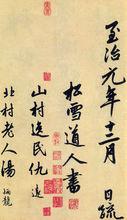 至治元年十二月 日疏
松雪道人書
山村逸民仇遠
北村老人湯炳龍